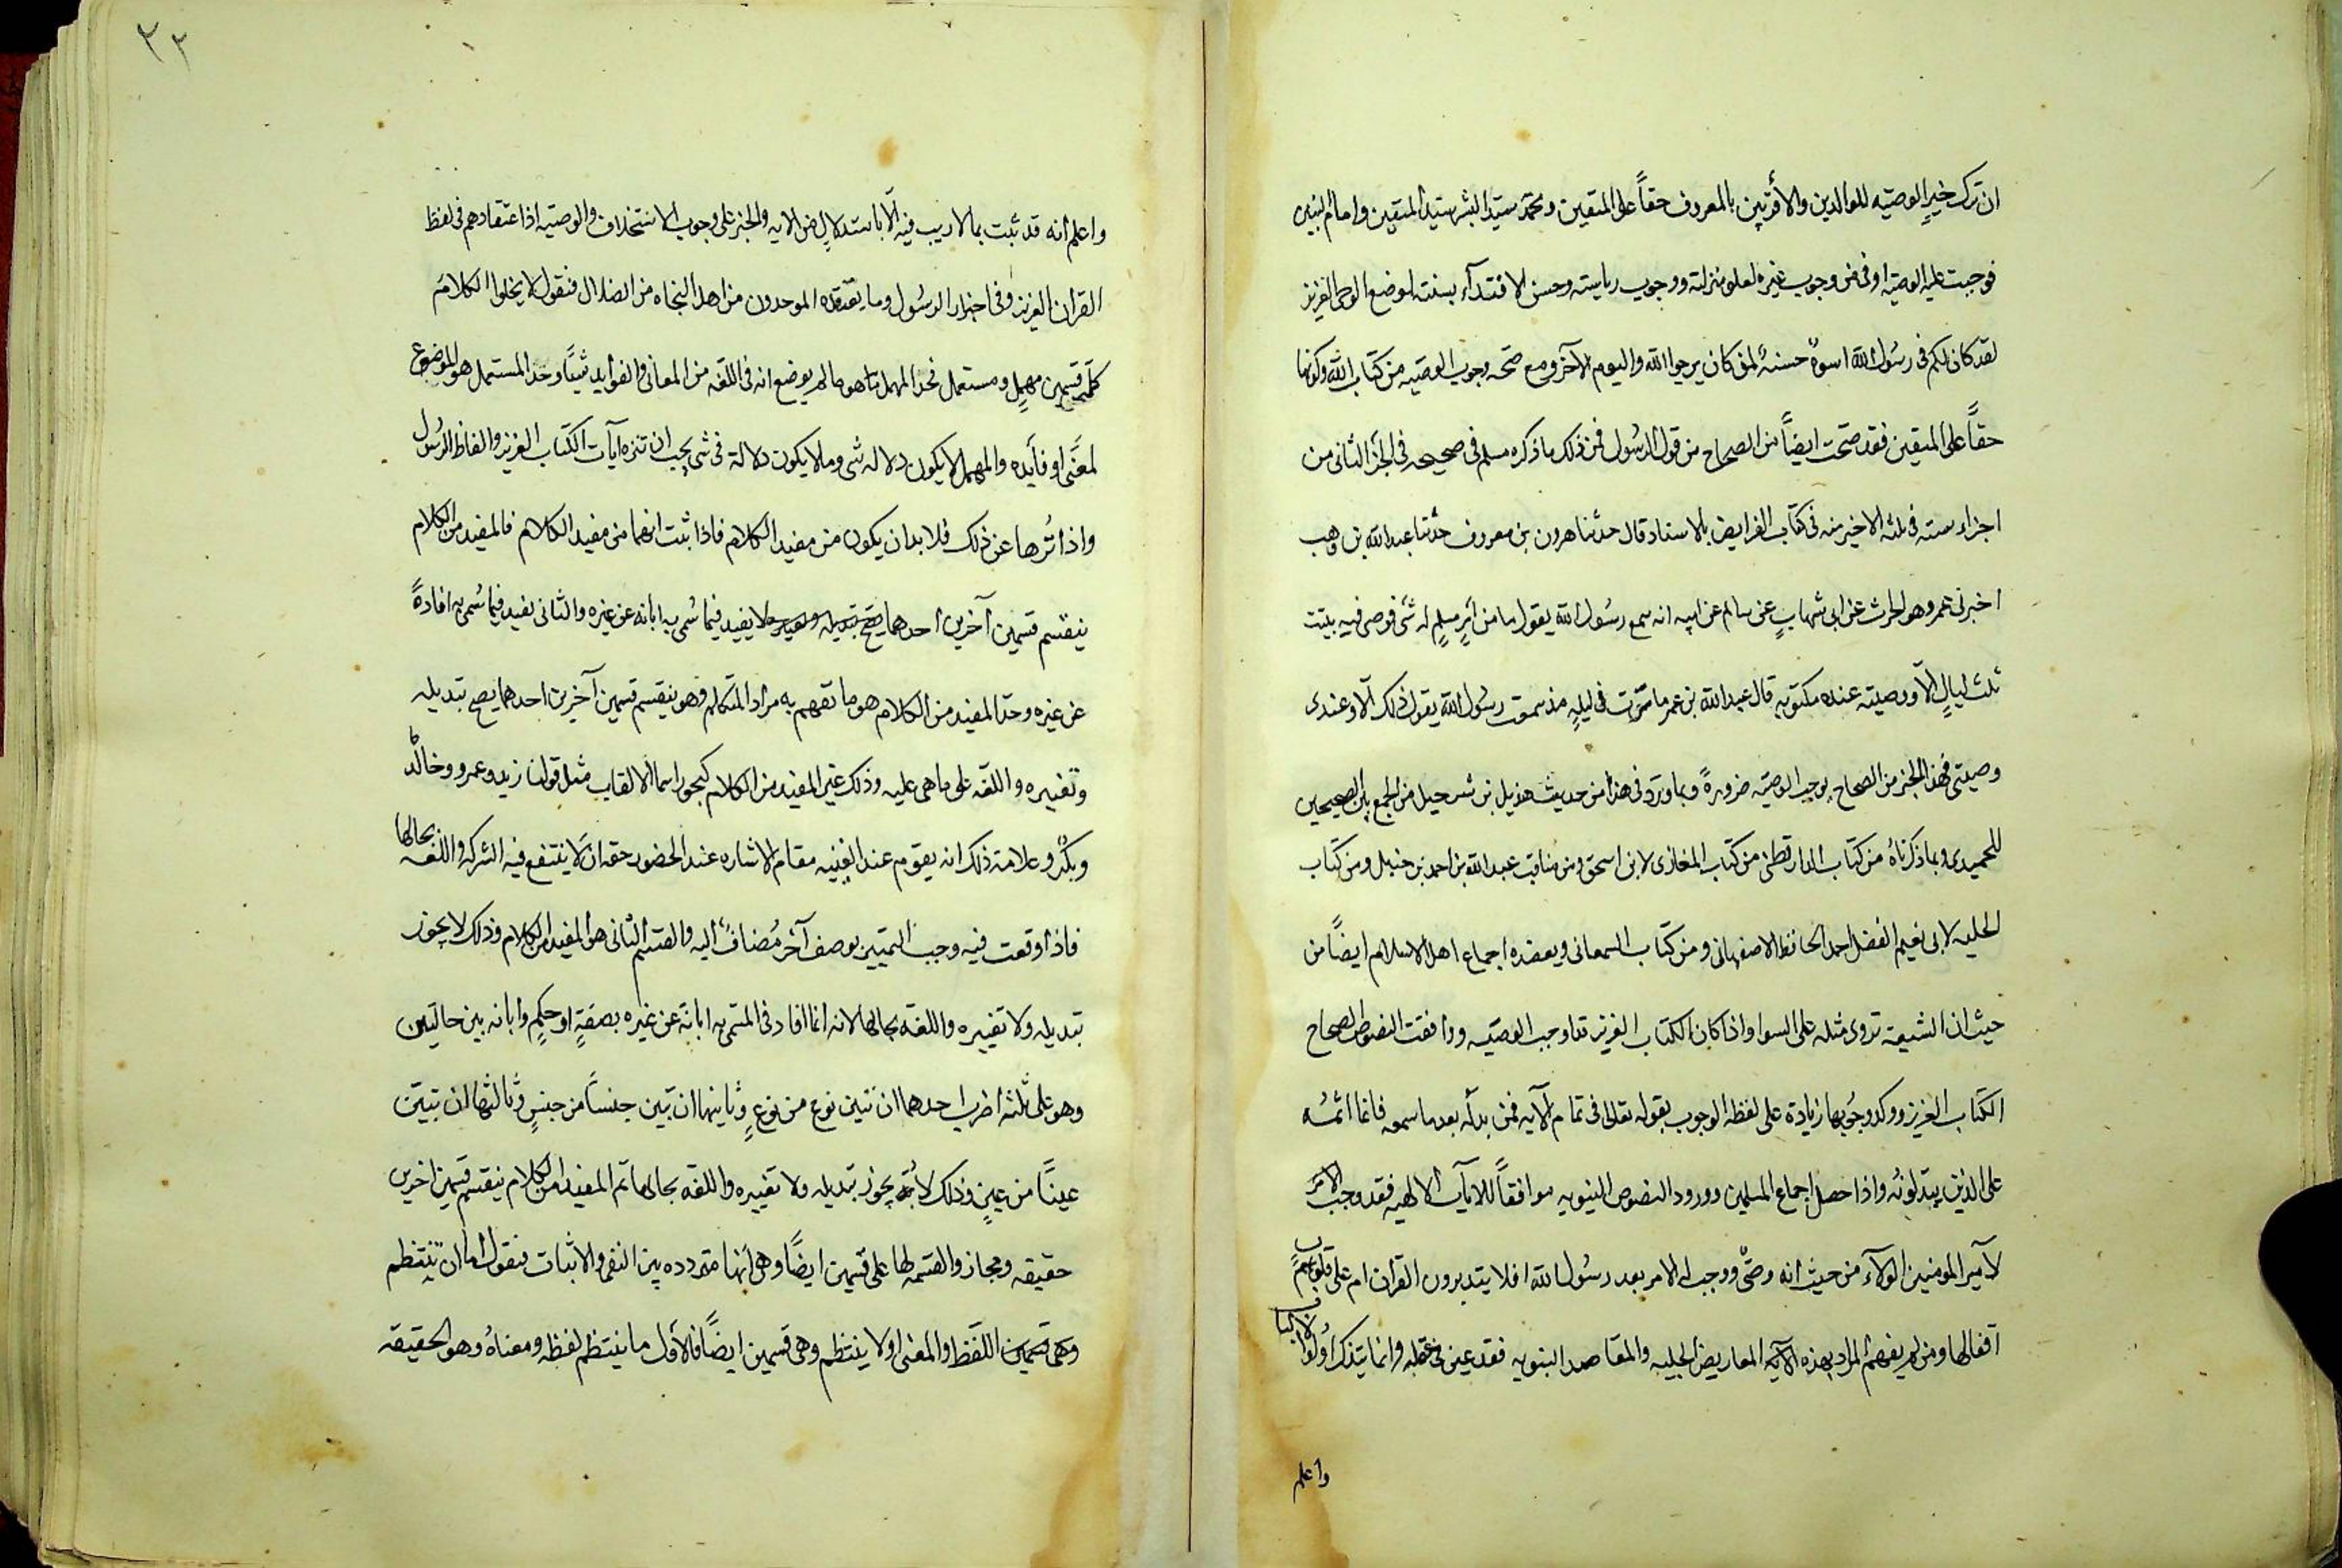 ان ترك خيرا الوصيه للوالدين والأقربين بالمعروف حقاً على المتقين ومحمّد سيّد البشر سيد المتقين وامام النبيين
فوجبت عليه الوصيّه اوفى من وجوب غيره لعلو منزلته ووجوب رياسته وحسن الاقتدآء بسنته لموضع الوحى العزيز
لقد كان لكم فى رسُول الله اسوةٌ حسنةٌ لمن كان يرجوا الله واليوم الآخر ومع صحّه وجوب الوصيّه من كتاب الله وكونها
حقاً على المتقين فقد صحّت ايضاً من الصحاح من قول الرسُول فمن ذلك ما ذكره مسلم فى صحيحه فى الجزء الثانى من
اجزاء سته فى ثلثه الاخير منه فى كتاب الفرايض بالاسناد قال حدثنا هرون بن معروف حدّثنا عبد الله بن وهب
اخبرنى عمرو وهو الحرث عن ابى شهابٍ عن سالم عن ابيه انه سمع رسُول الله يقول ما من امرٍ مسلمٍ له شئ فوصى فيه يبيت
ثلث ليالٍ الاّ ووصيته عنده مكتوبه قال عبد الله بن عمر ما مرّت فى ليلهٍ مذ سمعت رسُول الله يقول ذلك الاّ وعندى
وصيتى فهذا الخبر من الصحاح يوجب الوصيّه ضرورةً وبما ورَد فى هذا من حديث هذيل بن شرحيل من الجمع بين الصحيحين
للحميدى وبما ذكرناهُ من كتاب الدار قطنى من كتاب المغازى لابن اسحق ومن مناقب عبد الله بن احمد بن حنبل ومن كتاب
الحليه لابى نعيم الفضل احمد الحافظ الاصفهانى ومن كتاب السمعانى ويعضده اجماع اهل الاسلام ايضاً من
حيث ان الشيعه تروى مثله على السوا واذا كان الكتاب العزيز قد اوجب الوصيّه ووافقت النصوص الصحاح
الكتاب العزيز ووكد وجُوبها زيادة على لفظه الوجوب بقوله تعالى فى تمام الآيه فمن بدلّه بعد ما سمعه فانما اثمُه
على الذين يبدّلونُه واذا حصل اجماع المسلمين وورود النصوص النبويه موافقاً للايآت الالهيه فقد وجبَ الامر
لآمير المومنين الولآء من حيث انه وصّى ووجب له الامر بعد رسُول الله افلا يتدبرون القرآن ام على قلوبهم
اقفالها ومن لم يفهم المراد بهذه الآيه المعاريض الجليه والمقاصد النبويه فقد عين فى عقله وانما يتذكر اولوا الالباب
واعلم
٣٢
واعلم انه قد ثبت بما لاريب فيه الاّ باستدلالٍ من الايه والخبر على وجوب الاستخلاف والوصيّه اذا اعتقادهم فى لفظ
القران العزيز وفى اخبار الرسُول وما يعتقده الموحدون من اهل النجاه من الضلال فنقول لا يخلوا الكلامَ
كله قسمين مهملٍ ومستعمل فحد المهمل ما هو ما لم يوضع انه فى اللغه من المعانى والفوايد شيئاً وحد المستعمل هو الموضوع
لمعنًى او فآيده والمهمل لا يكون دلاله شى وما لا يكون دلالة فى شى يجب ان تنزه ايآت الكتاب العزيز والفاظ الرسُول
واذا نُزها عن ذلك فلا بد ان يكون من مفيد الكلام فاذا ثبت انهما من مفيد الكلام فالمفيد من الكلام
ينقسم قسمين آخرين احدهما يصّح تبديله وتغييره لا يفيد فيما سُمى به ابانه عن غيره والثانى يفيد فيما سُمى به افادةً
عن غيره وحدّ المفيد من الكلام هو ما تفهم به مراد المتكلم وهو ينقسم قسمين آخرين احدهما يصح تبديله
وتغييره واللغّه على ما هى عليه وذلك غير المفيد من الكلام كنحو اسما الالقاب مثل قولنا زيد وعمرو وخالدٌ
وبكرٌ وعلامة ذلك انه يقوم عند الغيبه مقام الاشاره عند الحضور حقه ان لا ينتفع فيه الشركه واللغه بحالها
فاذا وقعت فيه وجب التمييز بوصف آخر مُضاف اليه والقسم الثانى هو المفيد من الكلام وذلك لا يجوز
تبديله ولا تغييره واللغه بحالها لانه انما افاد فى المسّمى به ابانة عن غيره بصفةٍ او حكمٍ وابانه بين حالتين
وهو على ثلثه اضرب احدهما ان تبين نوع من نوعٍ وثانيهما ان تبين جنساً من جنسٍ وثالثها ان تبيّن
عيناً من عينٍ وذلك لا يجوز تبديله ولا تغييره واللغه بحالها ثم المفيد من الكلام ينقسم قسمين اخرين
حقيقه ومجاز والقسمه لها على قسمين ايضاً وهى انها مترَدده بين النفى والاثبات فنقول اما ان ينتظم
اللفظ والمعنى او لا ينتظم وهى قسمين ايضاً فالاول ما ينتظم لفظه ومعناهُ وهو الحقيقه